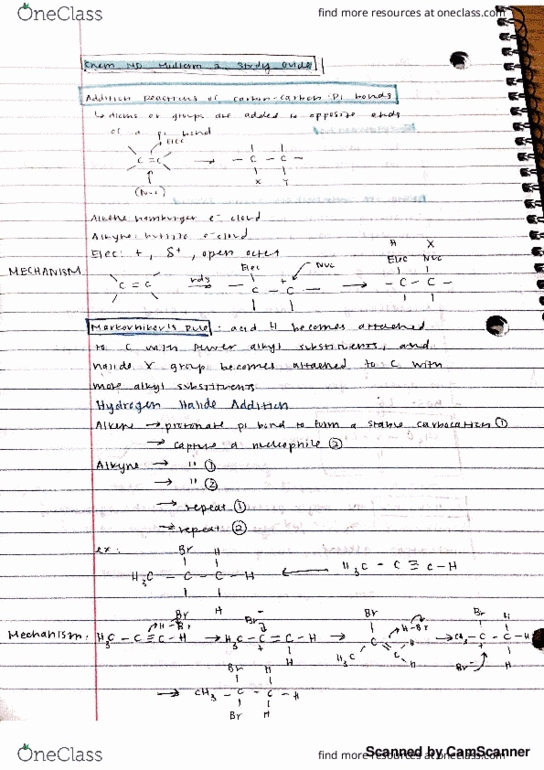 OneClass
find more resources at oneclass.com
Chem 14D Midterm 2 Study Guide
Addition reactions of carbon-carbon Pi bonds
↳ atoms or groups are added to opposite ends
of a pi bond
Elec
C = C → - C - C -
(Nuc) X Y
Alkene: hamburger e⁻ cloud
Alkyne: e⁻ cloud
Elec: +, δ+, open octet
H X
MECHANISM
Elec + Nuc Elec Nuc
C = C rds → - C - C - → - C - C -
Markovnikov's Rule: acid H becomes attached
to C with fewer alkyl substituents, and
halide X group becomes attached to C with
more alkyl substituents
Hydrogen Halide Addition
Alkene → protonate pi bond to form a stable carbocation ①
→ capture a nucleophile ②
Alkyne → " ①
→ " ②
→ repeat ①
→ repeat ②
ex:
Br H
H₃C - C - C - H ← H₃C - C ≡ C - H
Br H
Mechanism: H₃C - C ≡ C - H → H₃C - C = C - H →
H - Br Br⁻ + H
Br H₃C C = C H H - Br → CH₃ - C - C - H
Br H + Br⁻ H
Br H
→ CH₃ - C - C - H
Br H
OneClass
find more resources at oneclass.com
Scanned by CamScanner